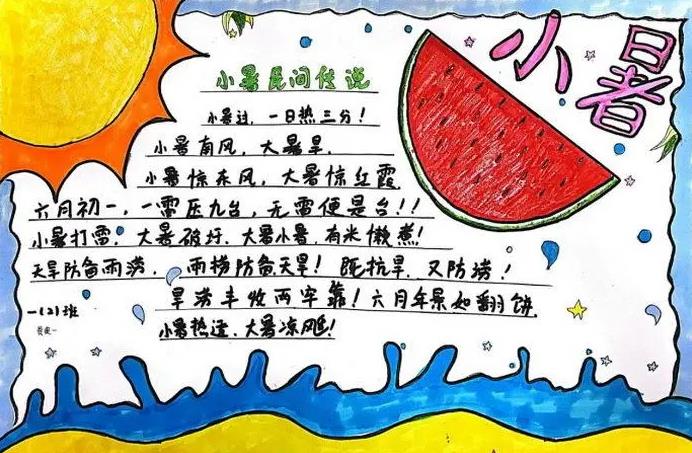 小暑
小暑民间传说
小暑过，一日热三分！
小暑南风，大暑旱.
小暑惊东风，大暑惊红霞.
六月初一，一雷压九台，无雷便是台！！
小暑打雷，大暑破圩、大暑小暑，有米懒煮！
天旱防备雨涝，雨捞防备天旱！既抗旱、又防涝！
旱涝丰收两牢靠！六月年景如翻饼.
小暑热过、大暑凉飕！
一（2）班